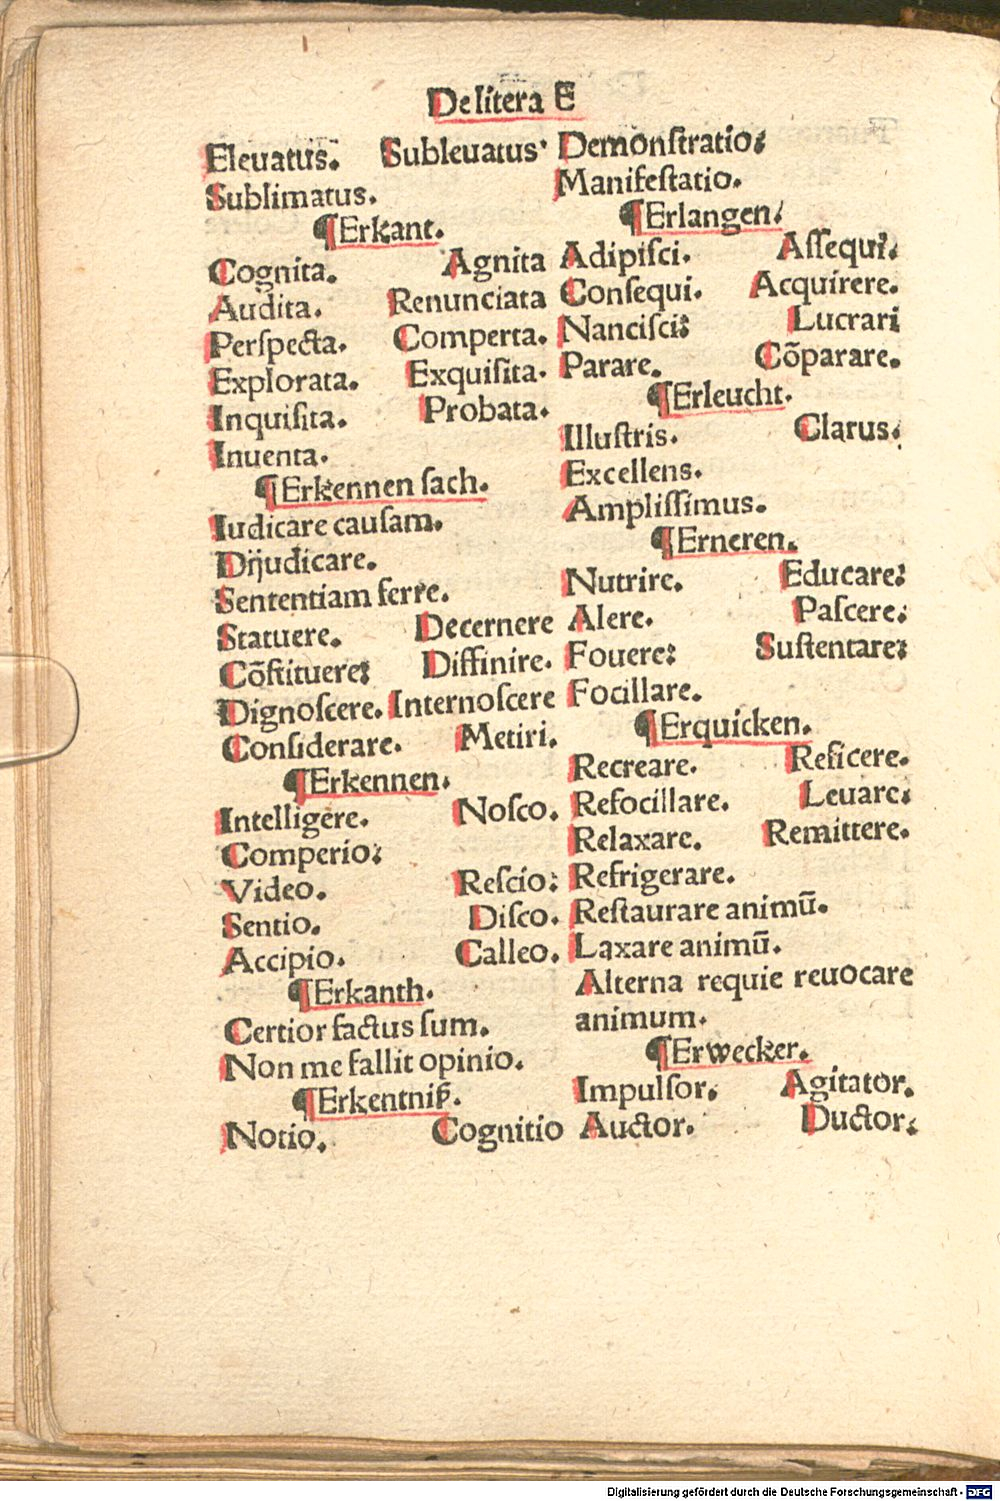 De litera E
Eleuatus. Subleuatus·
Sublimatus.
¶Erkant.
Cognita. Agnita
Audita. Renunciata
Perſpecta. Comperta.
Explorata. Exquiſita.
Inquiſita. Probata.
Inuenta.
¶Erkennen ſach.
Iudicare cauſam.
Dijudicare.
Sententiam ferre.
Statuere. Decernere
Cõſtituere: Diffinire.
Dignoſcere. Internoſcere
Conſiderare. Metiri.
¶Erkennen.
Intelligere. Noſco.
Comperio:
Video. Reſcio:
Sentio. Diſco.
Accipio. Calleo.
¶Erkanth.
Certior factus ſum.
Non me fallit opinio.
¶Erkentniß.
Notio. Cognitio
Demonſtratio:
Manifeſtatio.
¶Erlangen:
Adipiſci. Aſſequi.
Conſequi. Acquirere.
Nanciſci: Lucrari
Parare. Cõparare.
¶Erleucht.
Illuſtris. Clarus.
Excellens.
Ampliſſimus.
¶Erneren.
Nutrire. Educare:
Alere. Paſcere:
Fouere: Suſtentare:
Focillare.
¶Erquicken.
Recreare. Reficere.
Refocillare. Leuare:
Relaxare. Remittere.
Refrigerare.
Reſtaurare animũ.
Laxare animũ.
Alterna requie reuocare
animum.
¶Erwecker.
Impulſor. Agitator.
Auctor. Ductor:
Digitalisierung gefördert durch die Deutsche Forschungsgemeinschaft - DFG